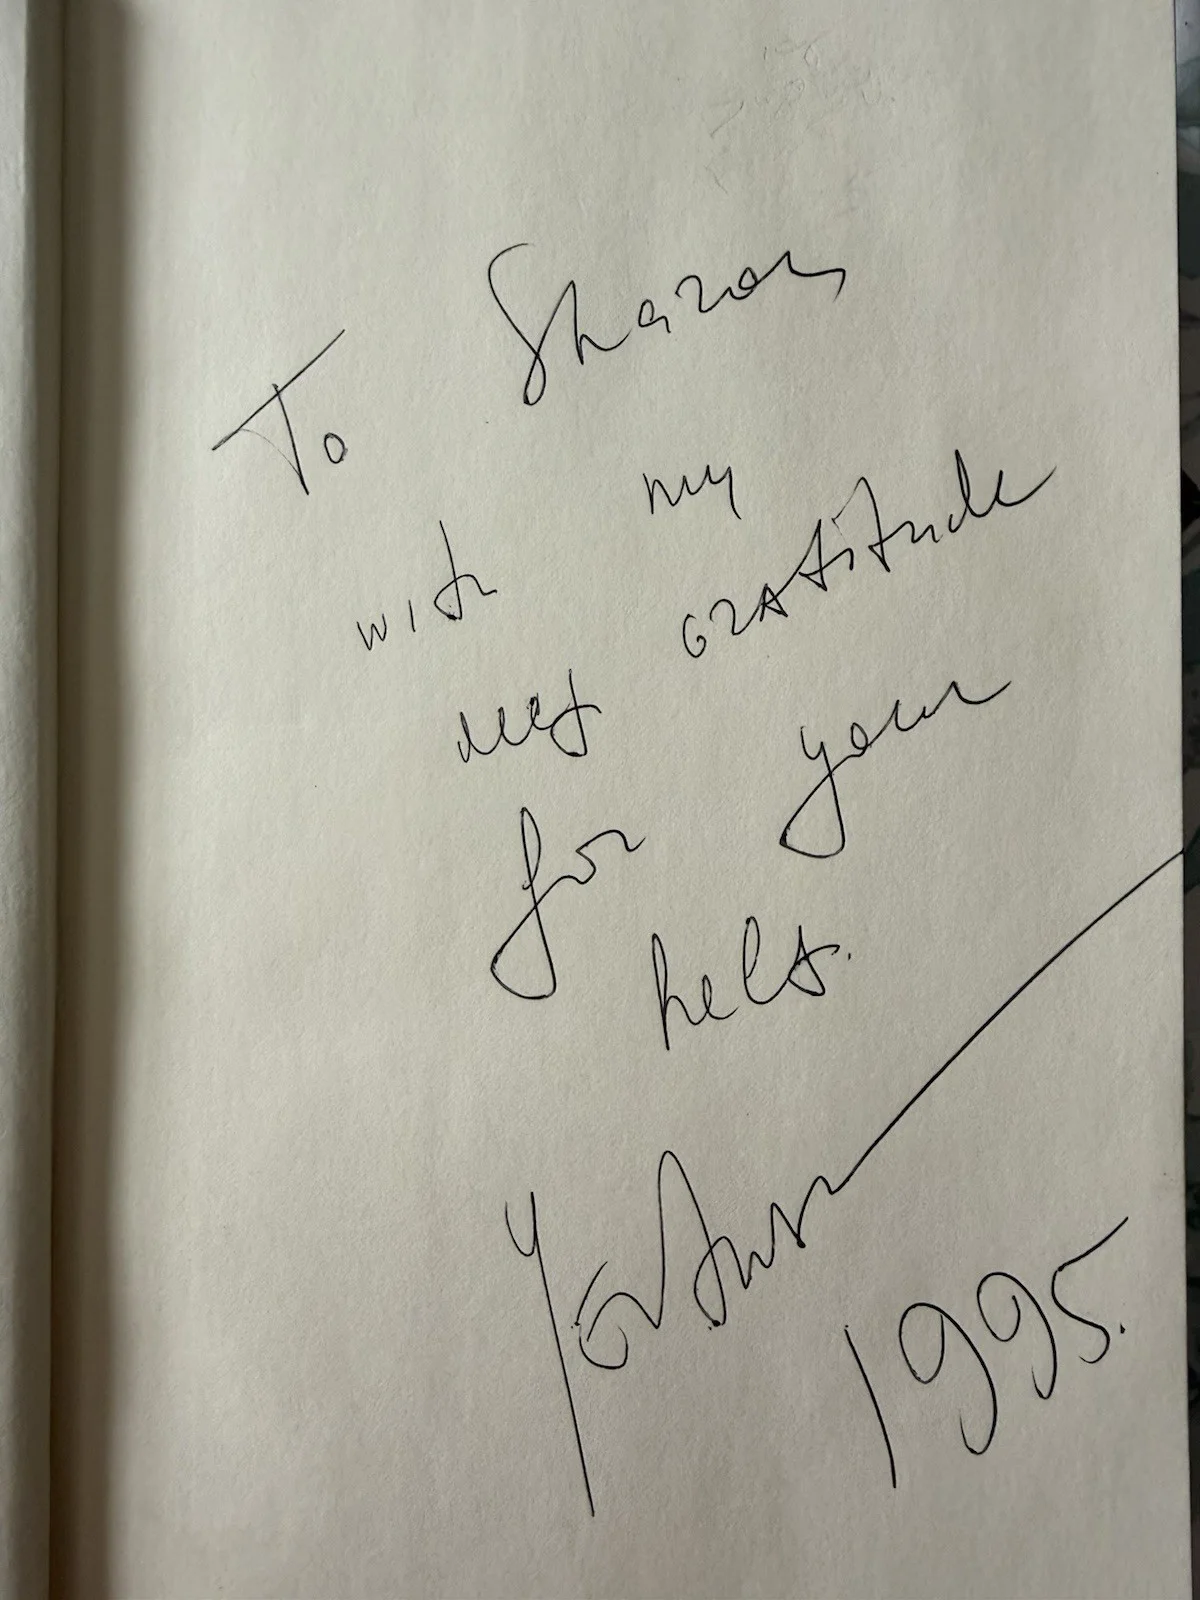 To Sharon
with my
deep GRAtitude
for your
help.
1995.